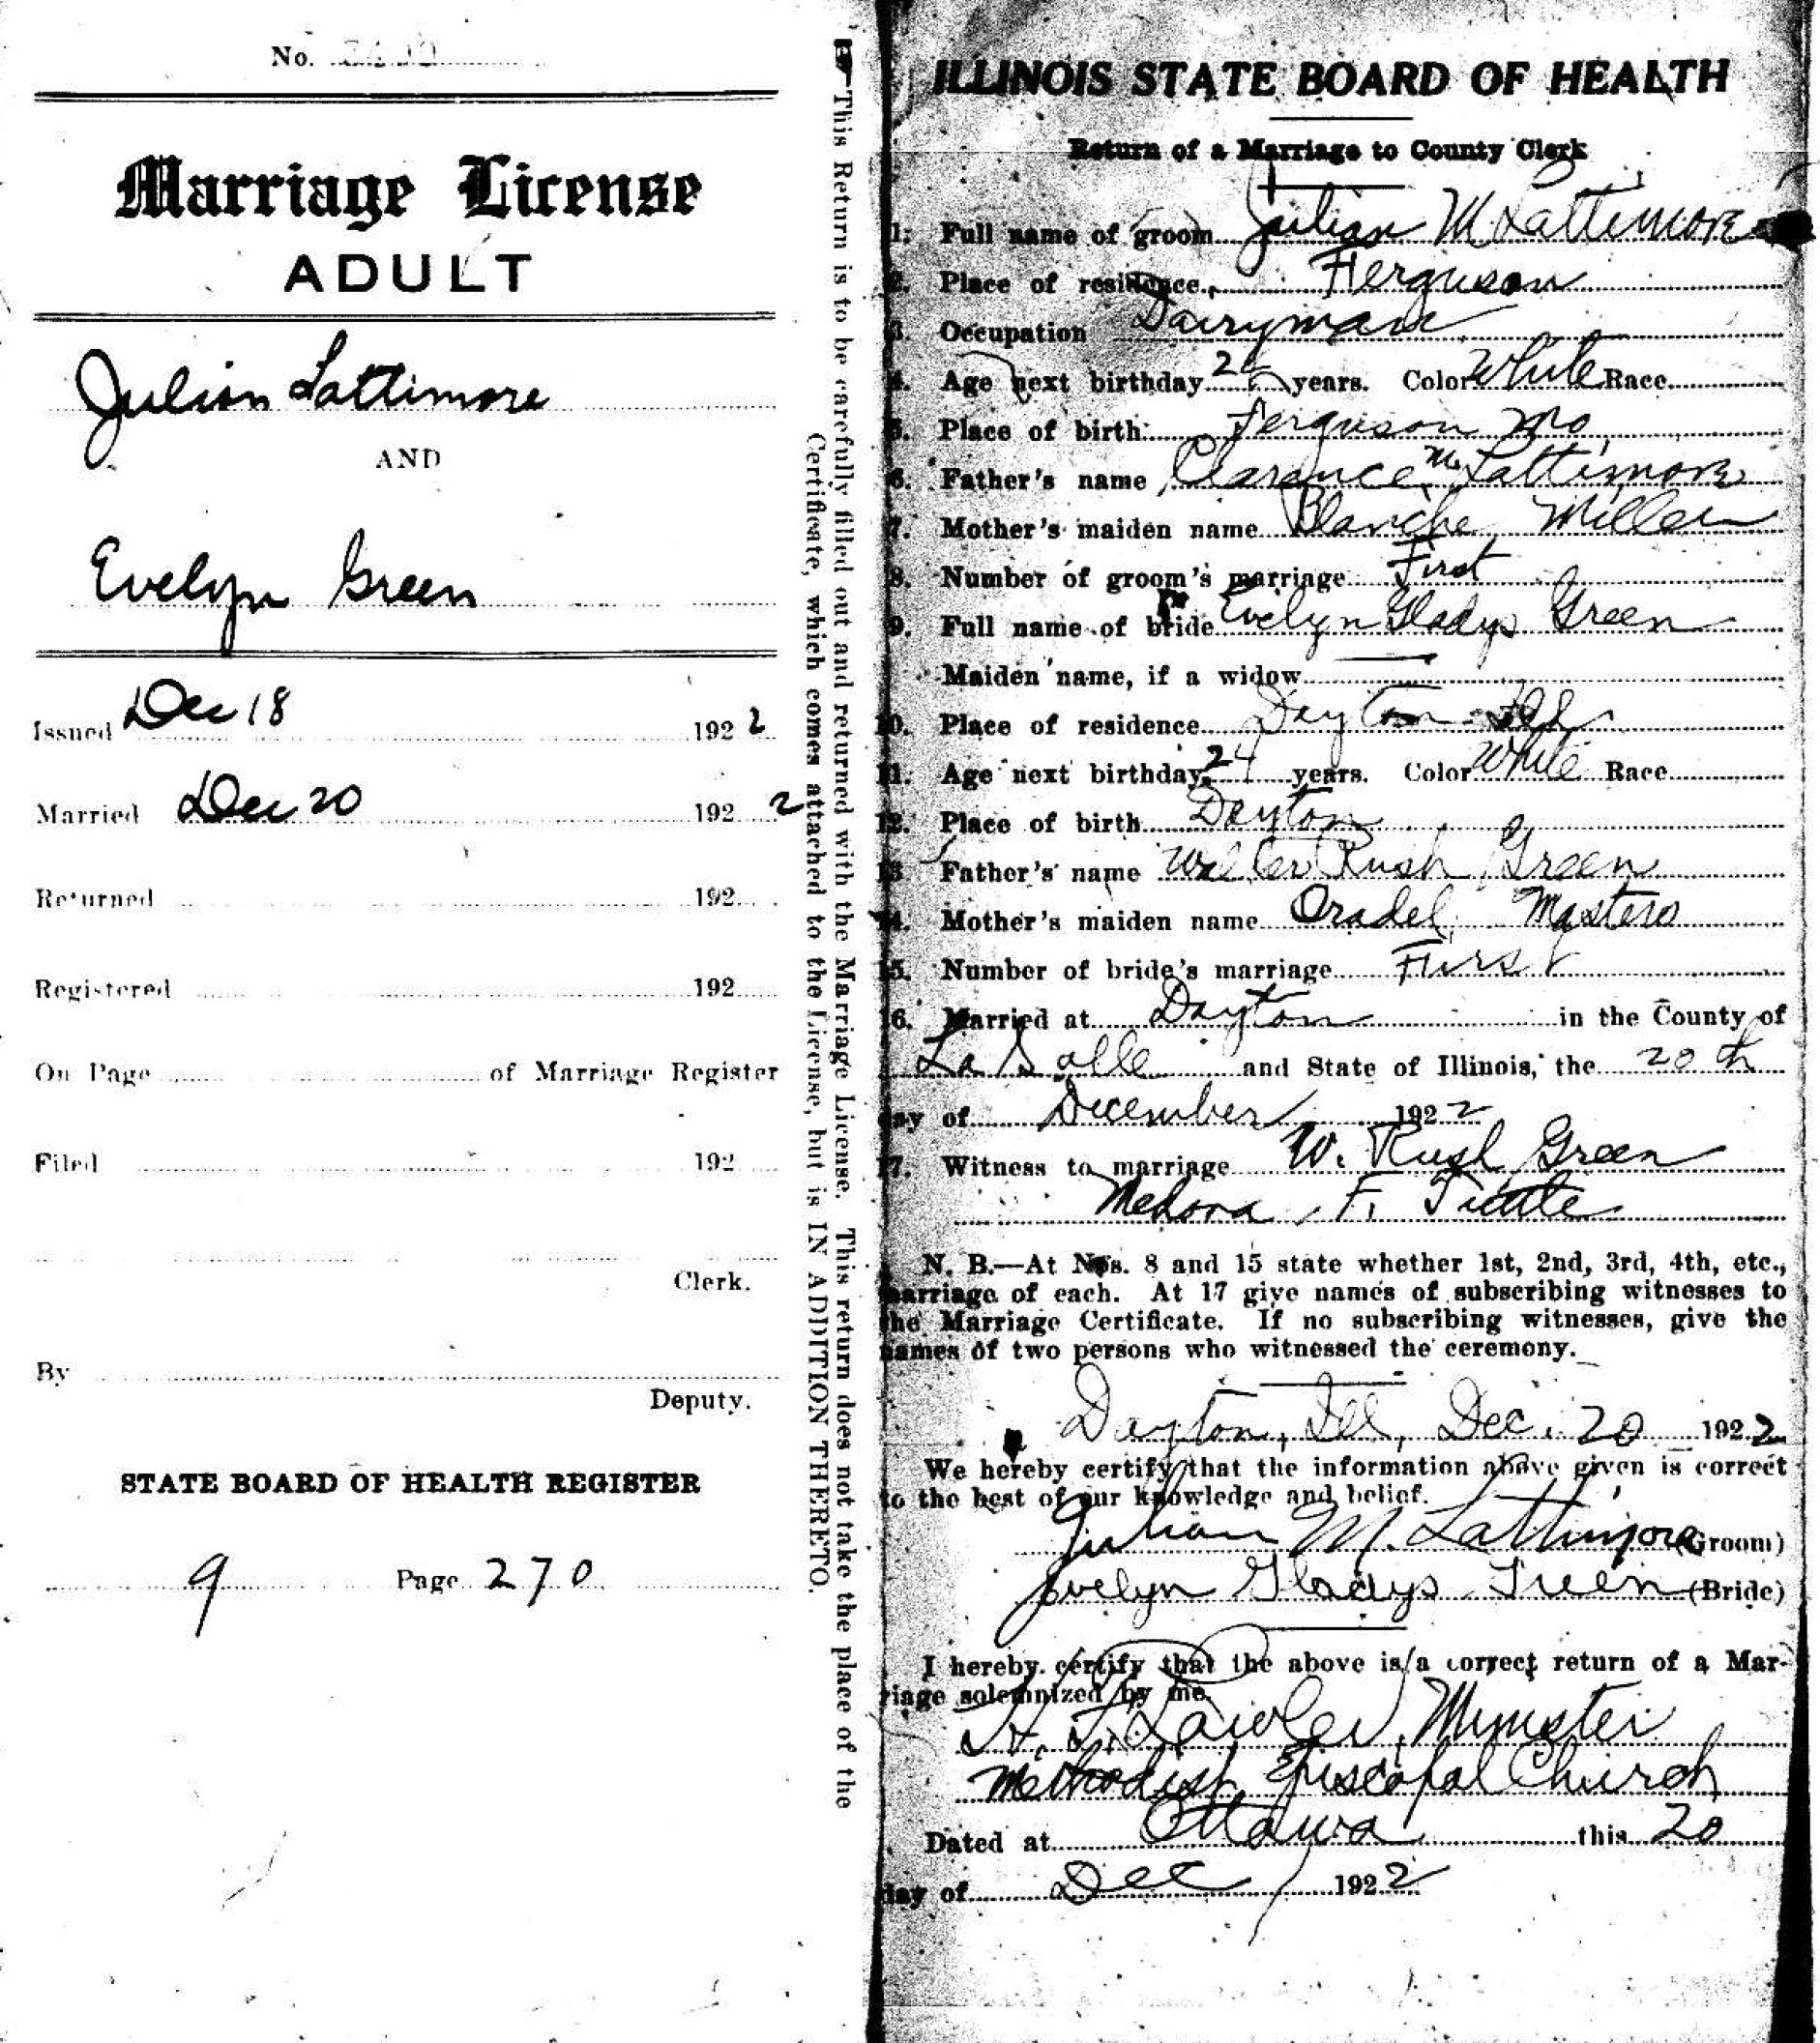 No.
Marriage License
ADULT
Julian Lattimore
AND
Evelyn Green
Issued Dec 18 1922
Married Dec 20 1922
Returned 192
Registered 192
On Page of Marriage Register
Filed 192
Clerk.
By
Deputy.
STATE BOARD OF HEALTH REGISTER
9 Page 270
This Return is to be carefully filled out and returned with the Marriage License. This return does not take the place of the
Certificate, which comes attached to the License, but is IN ADDITION THERETO.
ILLINOIS STATE BOARD OF HEALTH
Return of a Marriage to County Clerk
1. Full name of groom Julian M Lattimore
2. Place of residence, Ferguson
3. Occupation Dairyman
4. Age next birthday years. Color White Race
5. Place of birth Ferguson Mo
6. Father's name Clarance M. Lattimore
7. Mother's maiden name Blanche Miller
8. Number of groom's marriage First
9. Full name of bride Evelyn Gladys Green
Maiden name, if a widow
10. Place of residence Dayton Ill
11. Age next birthday 24 years. Color White Race
12. Place of birth Dayton
13 Father's name Walter Rush Green
14. Mother's maiden name Oradel Masters
15. Number of bride's marriage First
16. Married at Dayton in the County of
La Salle and State of Illinois, the 20th
day of December 1922
17. Witness to marriage W. Rush Green
Medora F.
N. B.—At Nos. 8 and 15 state whether 1st, 2nd, 3rd, 4th, etc.,
marriage of each. At 17 give names of subscribing witnesses to
the Marriage Certificate. If no subscribing witnesses, give the
names of two persons who witnessed the ceremony.
Dayton, Ill, Dec. 20 1922
We hereby certify that the information above given is correct
to the best of our knowledge and belief.
Julian M. Lattimore (Groom)
Evelyn Gladys Green (Bride)
I hereby certify that the above is a correct return of a Mar-
riage solemnized by me.
Minister
Methodist Episcopal Church
Dated at Ottawa this 20
day of Dec 1922